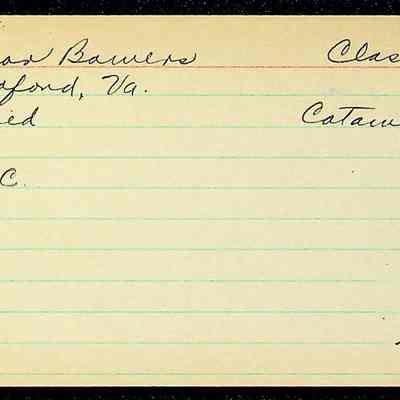 Bowers Clas
ford, Va.
ied Cataw
C.